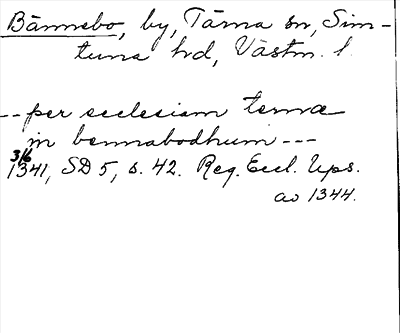 Bännebo, by, Tärna sn, Sim-
tuna hd, Västm. l.
-- per ecclesiam terna
in bennabodhum ---
3/6
1341, SD 5, s. 42. Reg. Eccl. Ups.
av 1344.